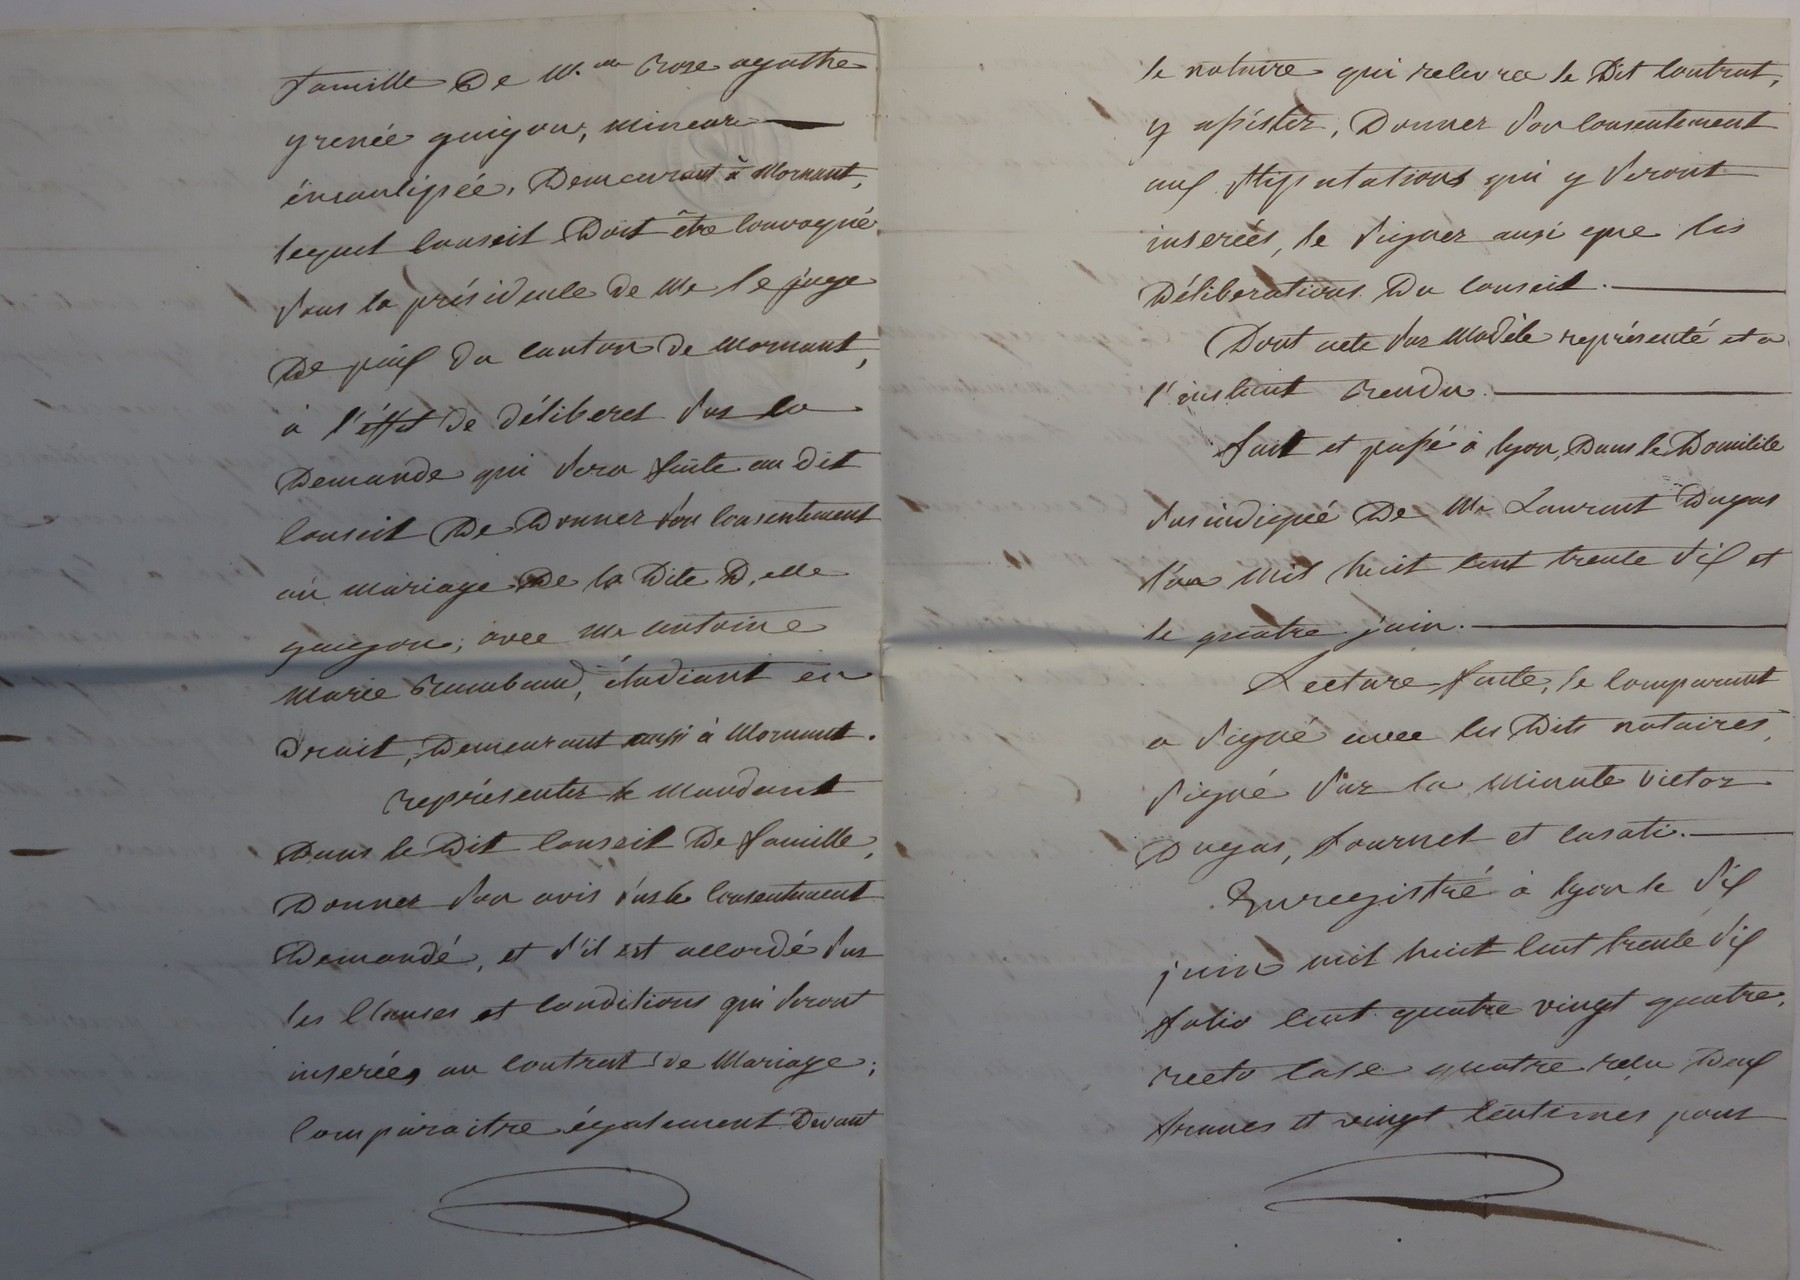 famille De M.elle Rose agathe
yrenée guigou, mineure
émancipée, Demeurant à Mornant,
lequel Conseil Doit être Convoqué
sous la présidence de Mr le juge
De paix du Canton de Mornant,
à l'éffet de déliberer sur la
Demande qui sera faite au dit
Conseil De Donner son Consentement
au mariage De la Dite D.elle
guigou, avec Mr antoine
Marie Raimbaud, étudiant en
Droit, Demeurant aussi à Mornant.
représenter le mandant
Dans le Dit Conseil De famille,
Donner son avis sur le Consentement
Demandé, et s'il est accordé sur
les Clauses et Conditions qui seront
inserées au Contrat de Mariage;
Comparaitre également Devant
le notaire qui relevra le Dit Contrat,
y assister, Donner son Consentement
aux stipulations qui y seront
inserées, le signer ainsi que les
Déliberations Du Conseil.
Dont acte sur Modèle représenté et a
l'instant rendu.
fait et passé à lyon, Dans le Domicile
sus indiqué De Mr Laurent Dugas
l'an mil huit Cent trente six et
le quatre juin.
Lecture faite, le Comparant
a signé avec les Dits notaires,
signé sur la minute Victor
Dugas, fournet et Casati.
Enregistré à lyon le six
juin mil huit Cent trente six
folio Cent quatre vingt quatre,
recto Case quatre reçu Deux
francs et vingt Centimes pour